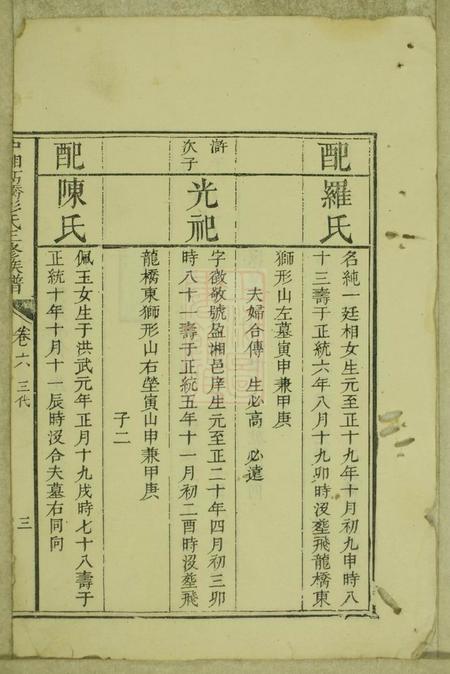 配
羅氏
名純一廷相女生元至正十九年十月初九申時八
十三壽于正統六年八月十九卯時沒塟飛龍橋東
獅形山左墓寅申兼甲庚
夫婦合傳 生必高 必遠
滸
次子
光祀
字徵敬號盈湘邑庠生元至正二十年四月初三卯
時八十一壽于正統五年十一月初二酉時沒塟飛
龍橋東獅形山右塋寅山申兼甲庚
子二
配
陳氏
佩玉女生于洪武元年正月十九戌時七十八壽于
正統十年十月十一辰時沒合夫墓右同向
中湘高橋彭氏三修族譜
卷六 三代
三